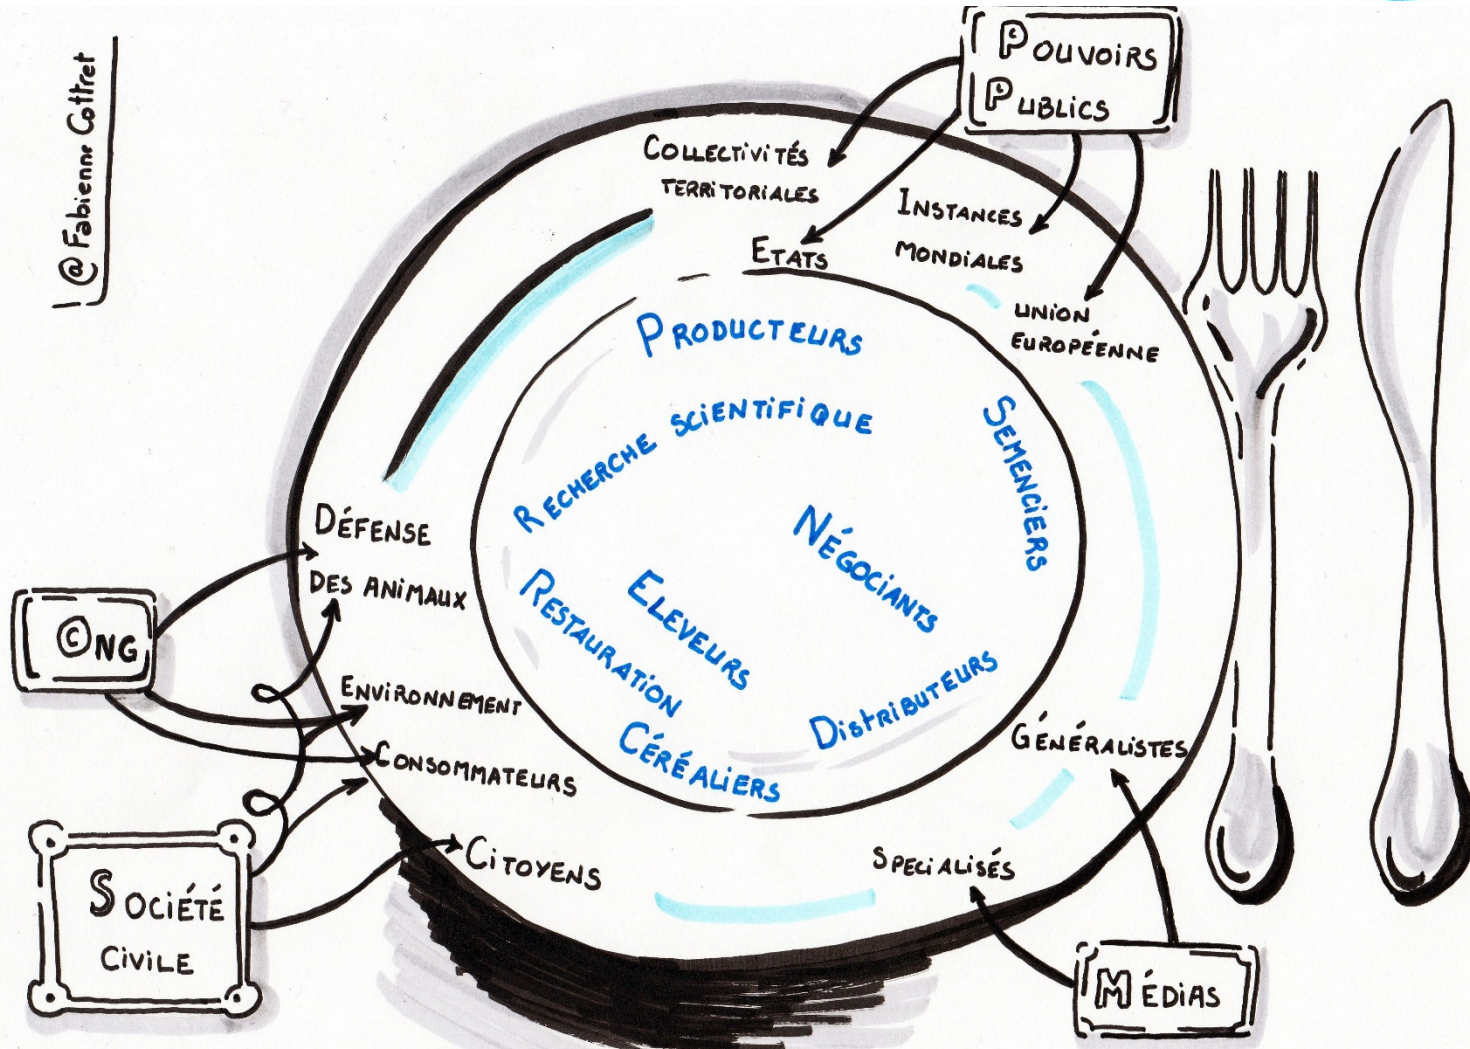 @ Fabienne Cottret
POUVOIRS
PUBLICS
COLLECTIVITÉS
TERRITORIALES
INSTANCES
MONDIALES
ETATS
UNION
EUROPÉENNE
PRODUCTEURS
RECHERCHE SCIENTIFIQUE
SEMENCIERS
NÉGOCIANTS
ELEVEURS
RESTAURATION
CÉRÉALIERS
DISTRIBUTEURS
DÉFENSE
DES ANIMAUX
ONG
ENVIRONNEMENT
CONSOMMATEURS
CITOYENS
SOCIÉTÉ
CIVILE
GÉNÉRALISTES
SPECIALISÉS
MÉDIAS